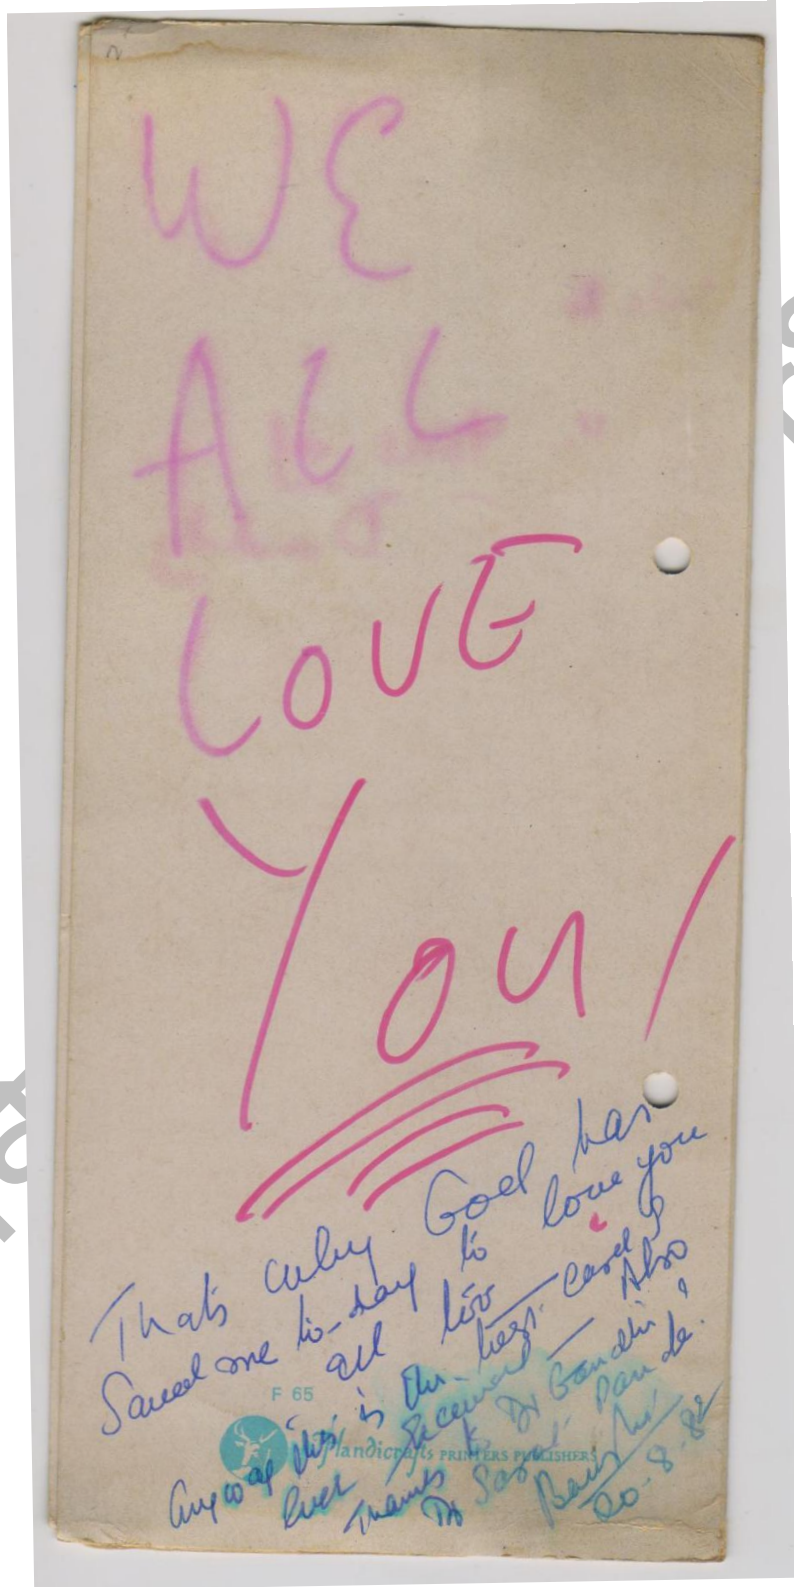 WE
ALL
LOVE
YOU!
Thats why God has
Saved me to-day to love you
all too
Anyway this is the best card I
ever received — Also
Thanks to Dr Gandhi &
Dr Sarat Pande.
20-8-82
F 65
Handicrafts PRINTERS PUBLISHERS